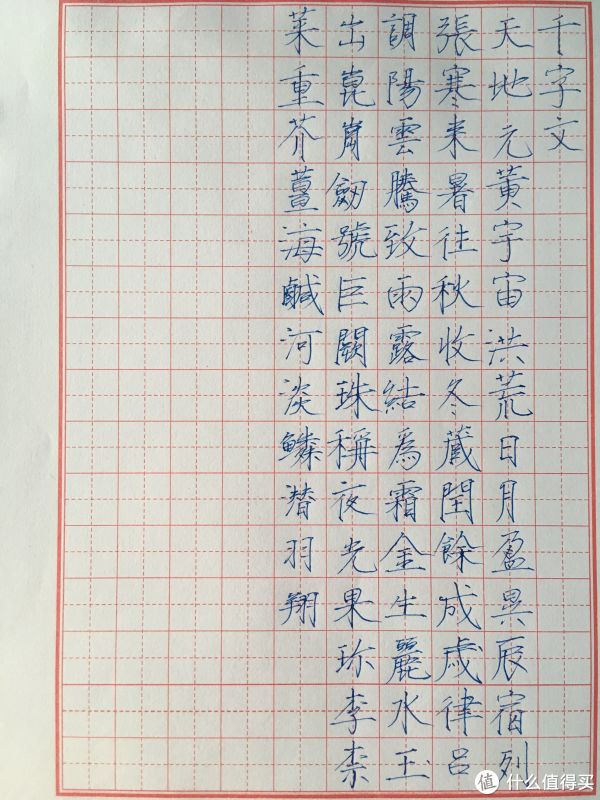 千字文
天地元黃宇宙洪荒日月盈昃辰宿列
張寒来暑往秋收冬藏閏餘成歲律吕
調陽雲騰致雨露結為霜金生麗水玉
出崑岡劒號巨闕珠稱夜光果珎李柰
菜重芥薑海鹹河淡鱗潜羽翔
值 什么值得买